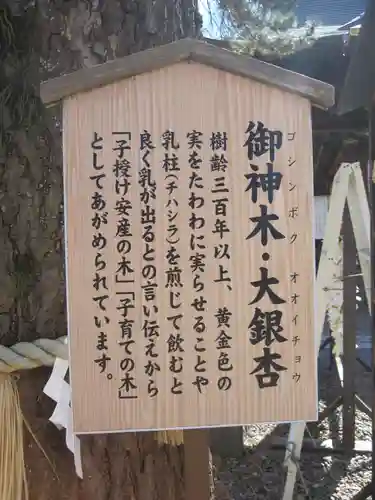 御神木・大銀杏
ゴシンボク オオイチョウ
樹齢三百年以上、黄金色の
実をたわわに実らせることや
乳柱(チハシラ)を煎じて飲むと
良く乳が出るとの言い伝えから
「子授け安産の木」「子育ての木」
としてあがめられています。